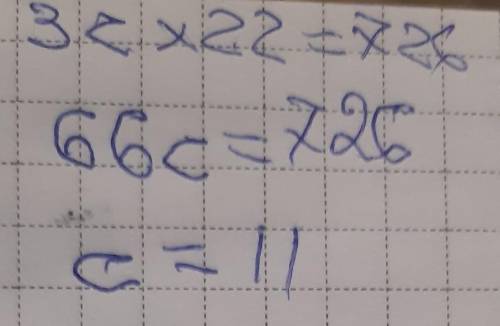 3c × 22 = 726
66c = 726
c = 11